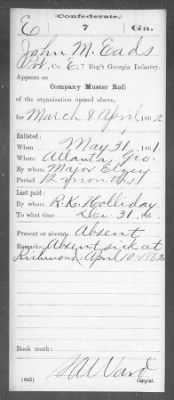 Confederate.
E 7 Ga.
John M. Eads
Pvt., Co. E, 7 Reg't Georgia Infantry.
Appears on
Company Muster Roll
of the organization named above,
for March & April, 1862
Enlisted:
When May 31, 1861.
Where Atlanta, Geo.
By whom Major
Period 12 months
Last paid:
By whom R. K. Holliday
To what time Dec 31, 186
Present or absent Absent
Remarks: Absent sick at
Richmond April 10, 1862
Book mark:
(642) Copyist.